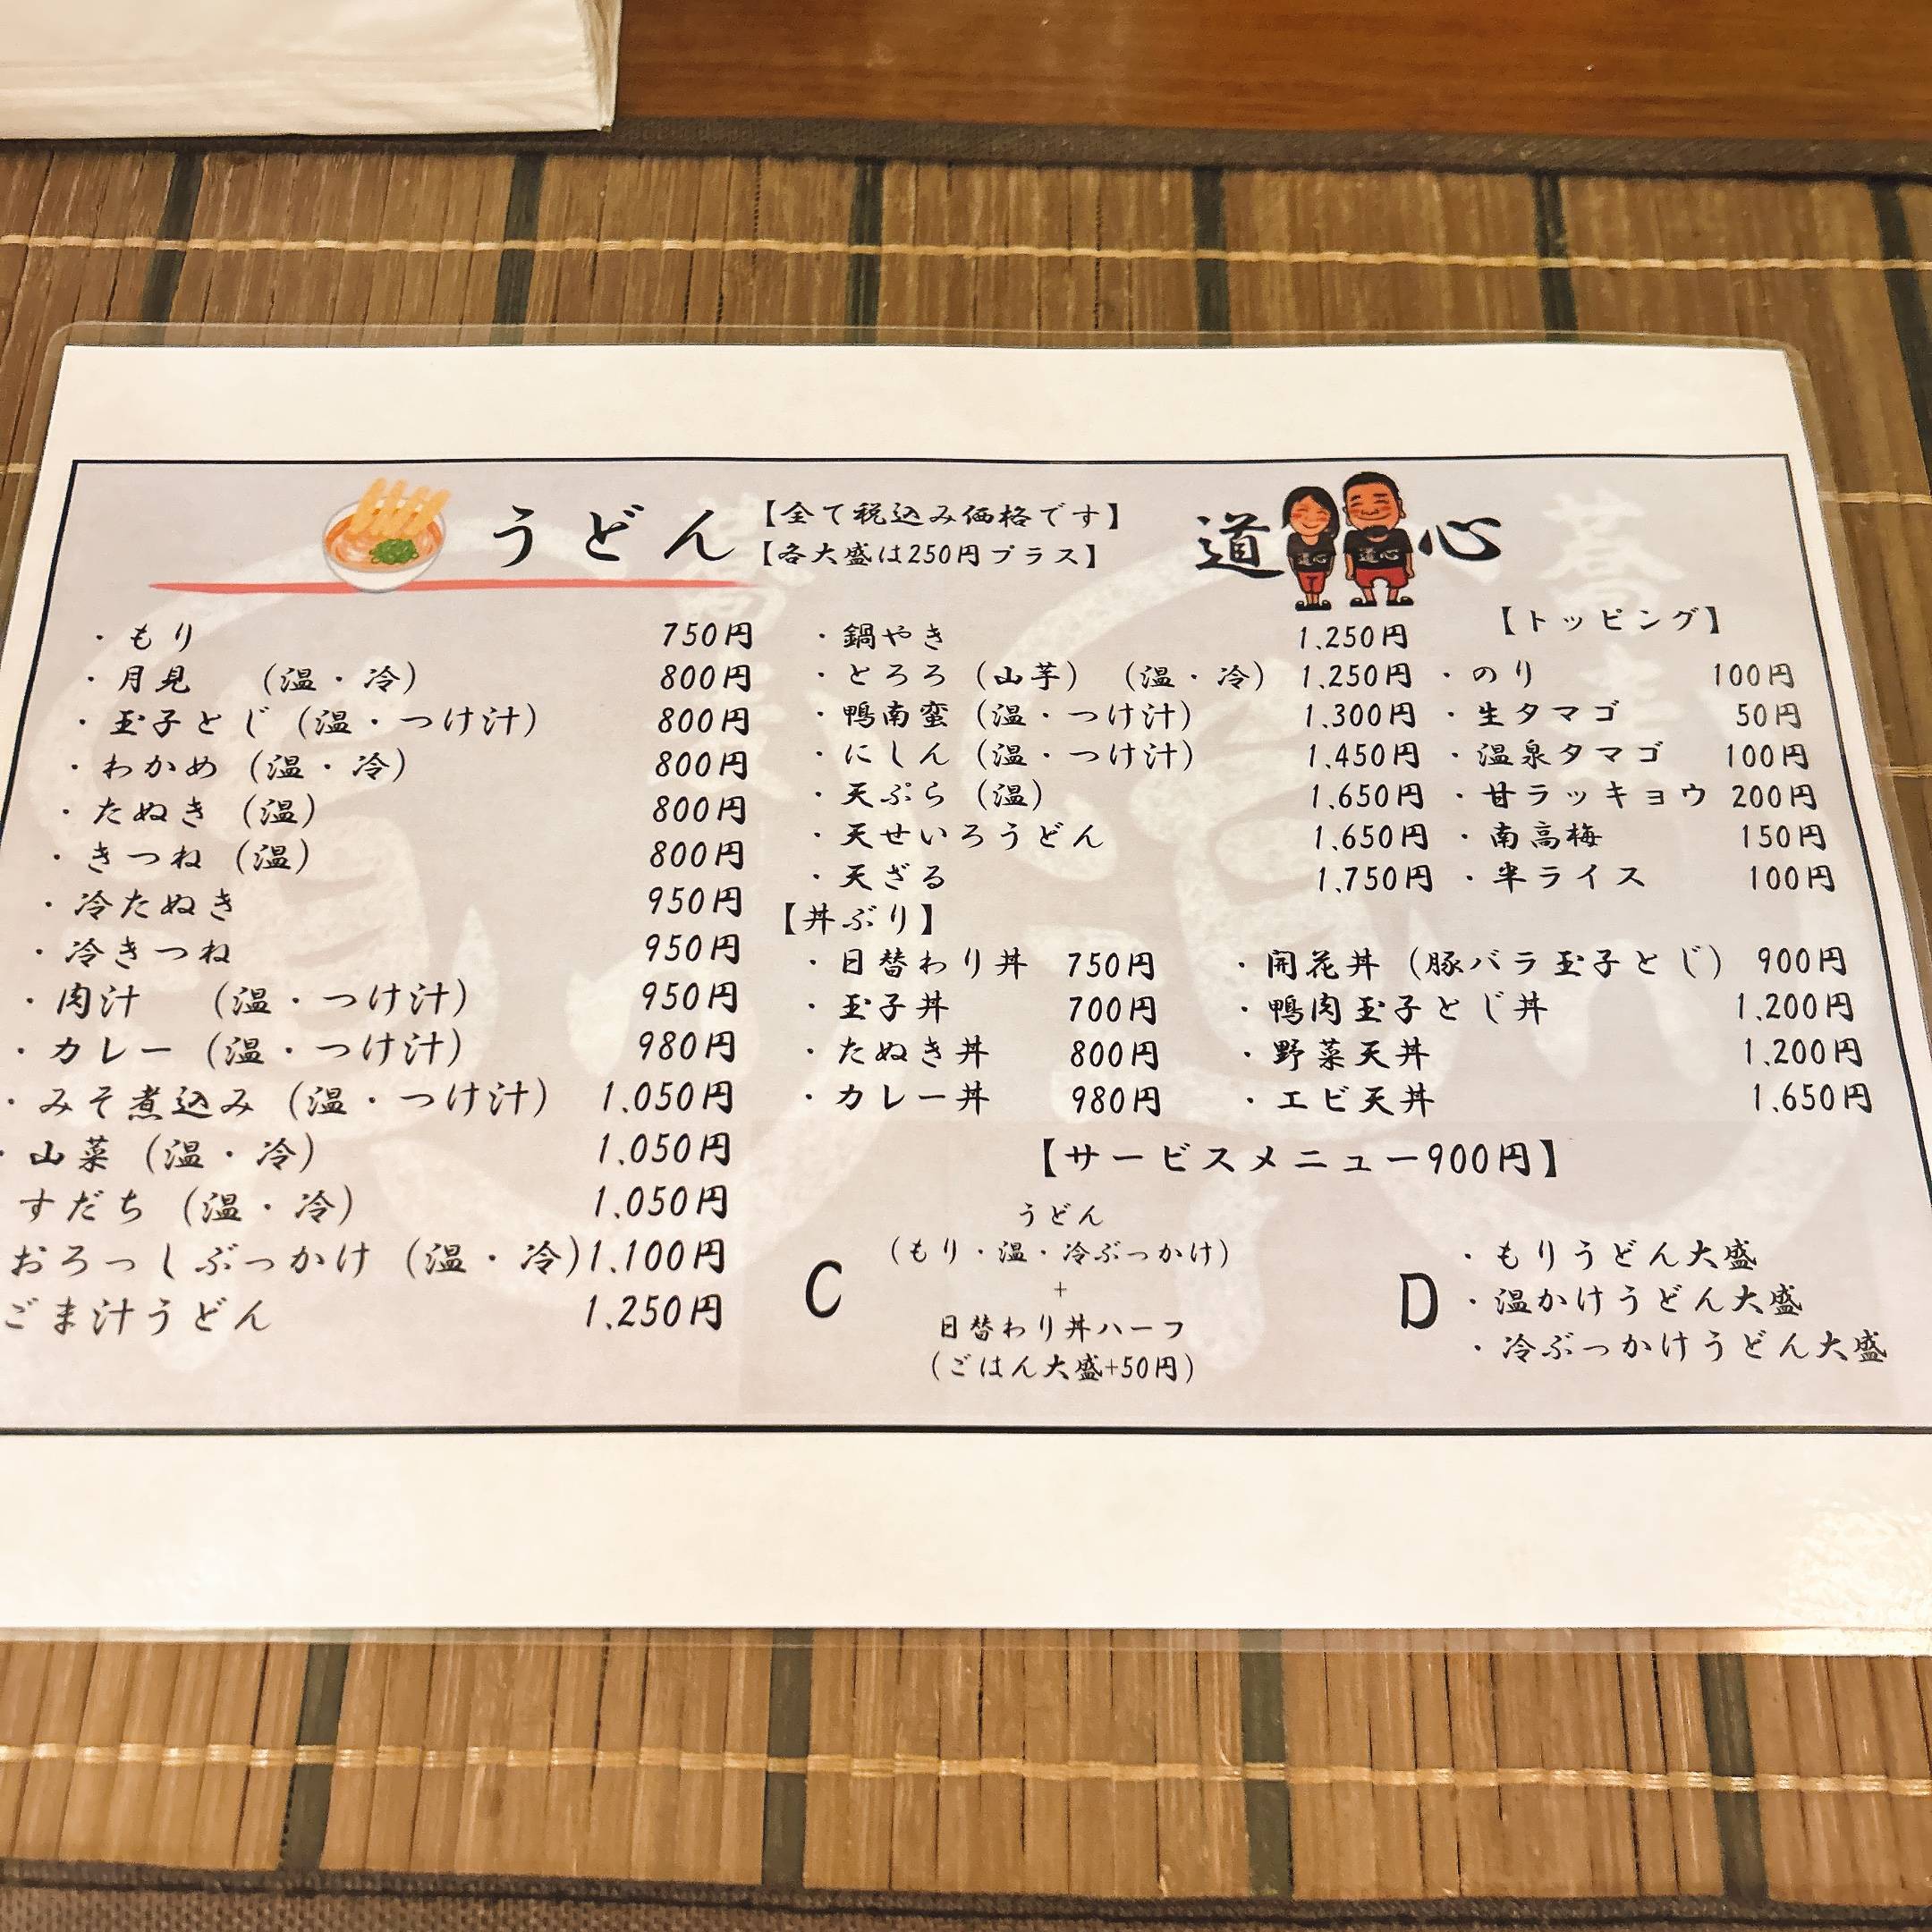 うどん
【全て税込み価格です】
【各大盛は250円プラス】
道心
・もり 750円
・月見 (温・冷) 800円
・玉子とじ (温・つけ汁) 800円
・わかめ (温・冷) 800円
・たぬき (温) 800円
・きつね (温) 800円
・冷たぬき 950円
・冷きつね 950円
・肉汁 (温・つけ汁) 950円
・カレー (温・つけ汁) 980円
・みそ煮込み (温・つけ汁) 1.050円
・山菜 (温・冷) 1.050円
すだち (温・冷) 1.050円
おろっしぶっかけ (温・冷) 1.100円
ごま汁うどん 1.250円
・鍋やき 1.250円
・とろろ (山芋) (温・冷) 1.250円
・鴨南蛮 (温・つけ汁) 1.300円
・にしん (温・つけ汁) 1.450円
・天ぷら (温) 1.650円
・天せいろうどん 1.650円
・天ざる 1.750円
【トッピング】
・のり 100円
・生タマゴ 50円
・温泉タマゴ 100円
・甘ラッキョウ 200円
・南高梅 150円
・半ライス 100円
【丼ぶり】
・日替わり丼 750円
・玉子丼 700円
・たぬき丼 800円
・カレー丼 980円
・開花丼 (豚バラ玉子とじ) 900円
・鴨肉玉子とじ丼 1.200円
・野菜天丼 1.200円
・エビ天丼 1.650円
【サービスメニュー900円】
C
うどん
(もり・温・冷ぶっかけ)
+
日替わり丼ハーフ
(ごはん大盛+50円)
D
・もりうどん大盛
・温かけうどん大盛
・冷ぶっかけうどん大盛